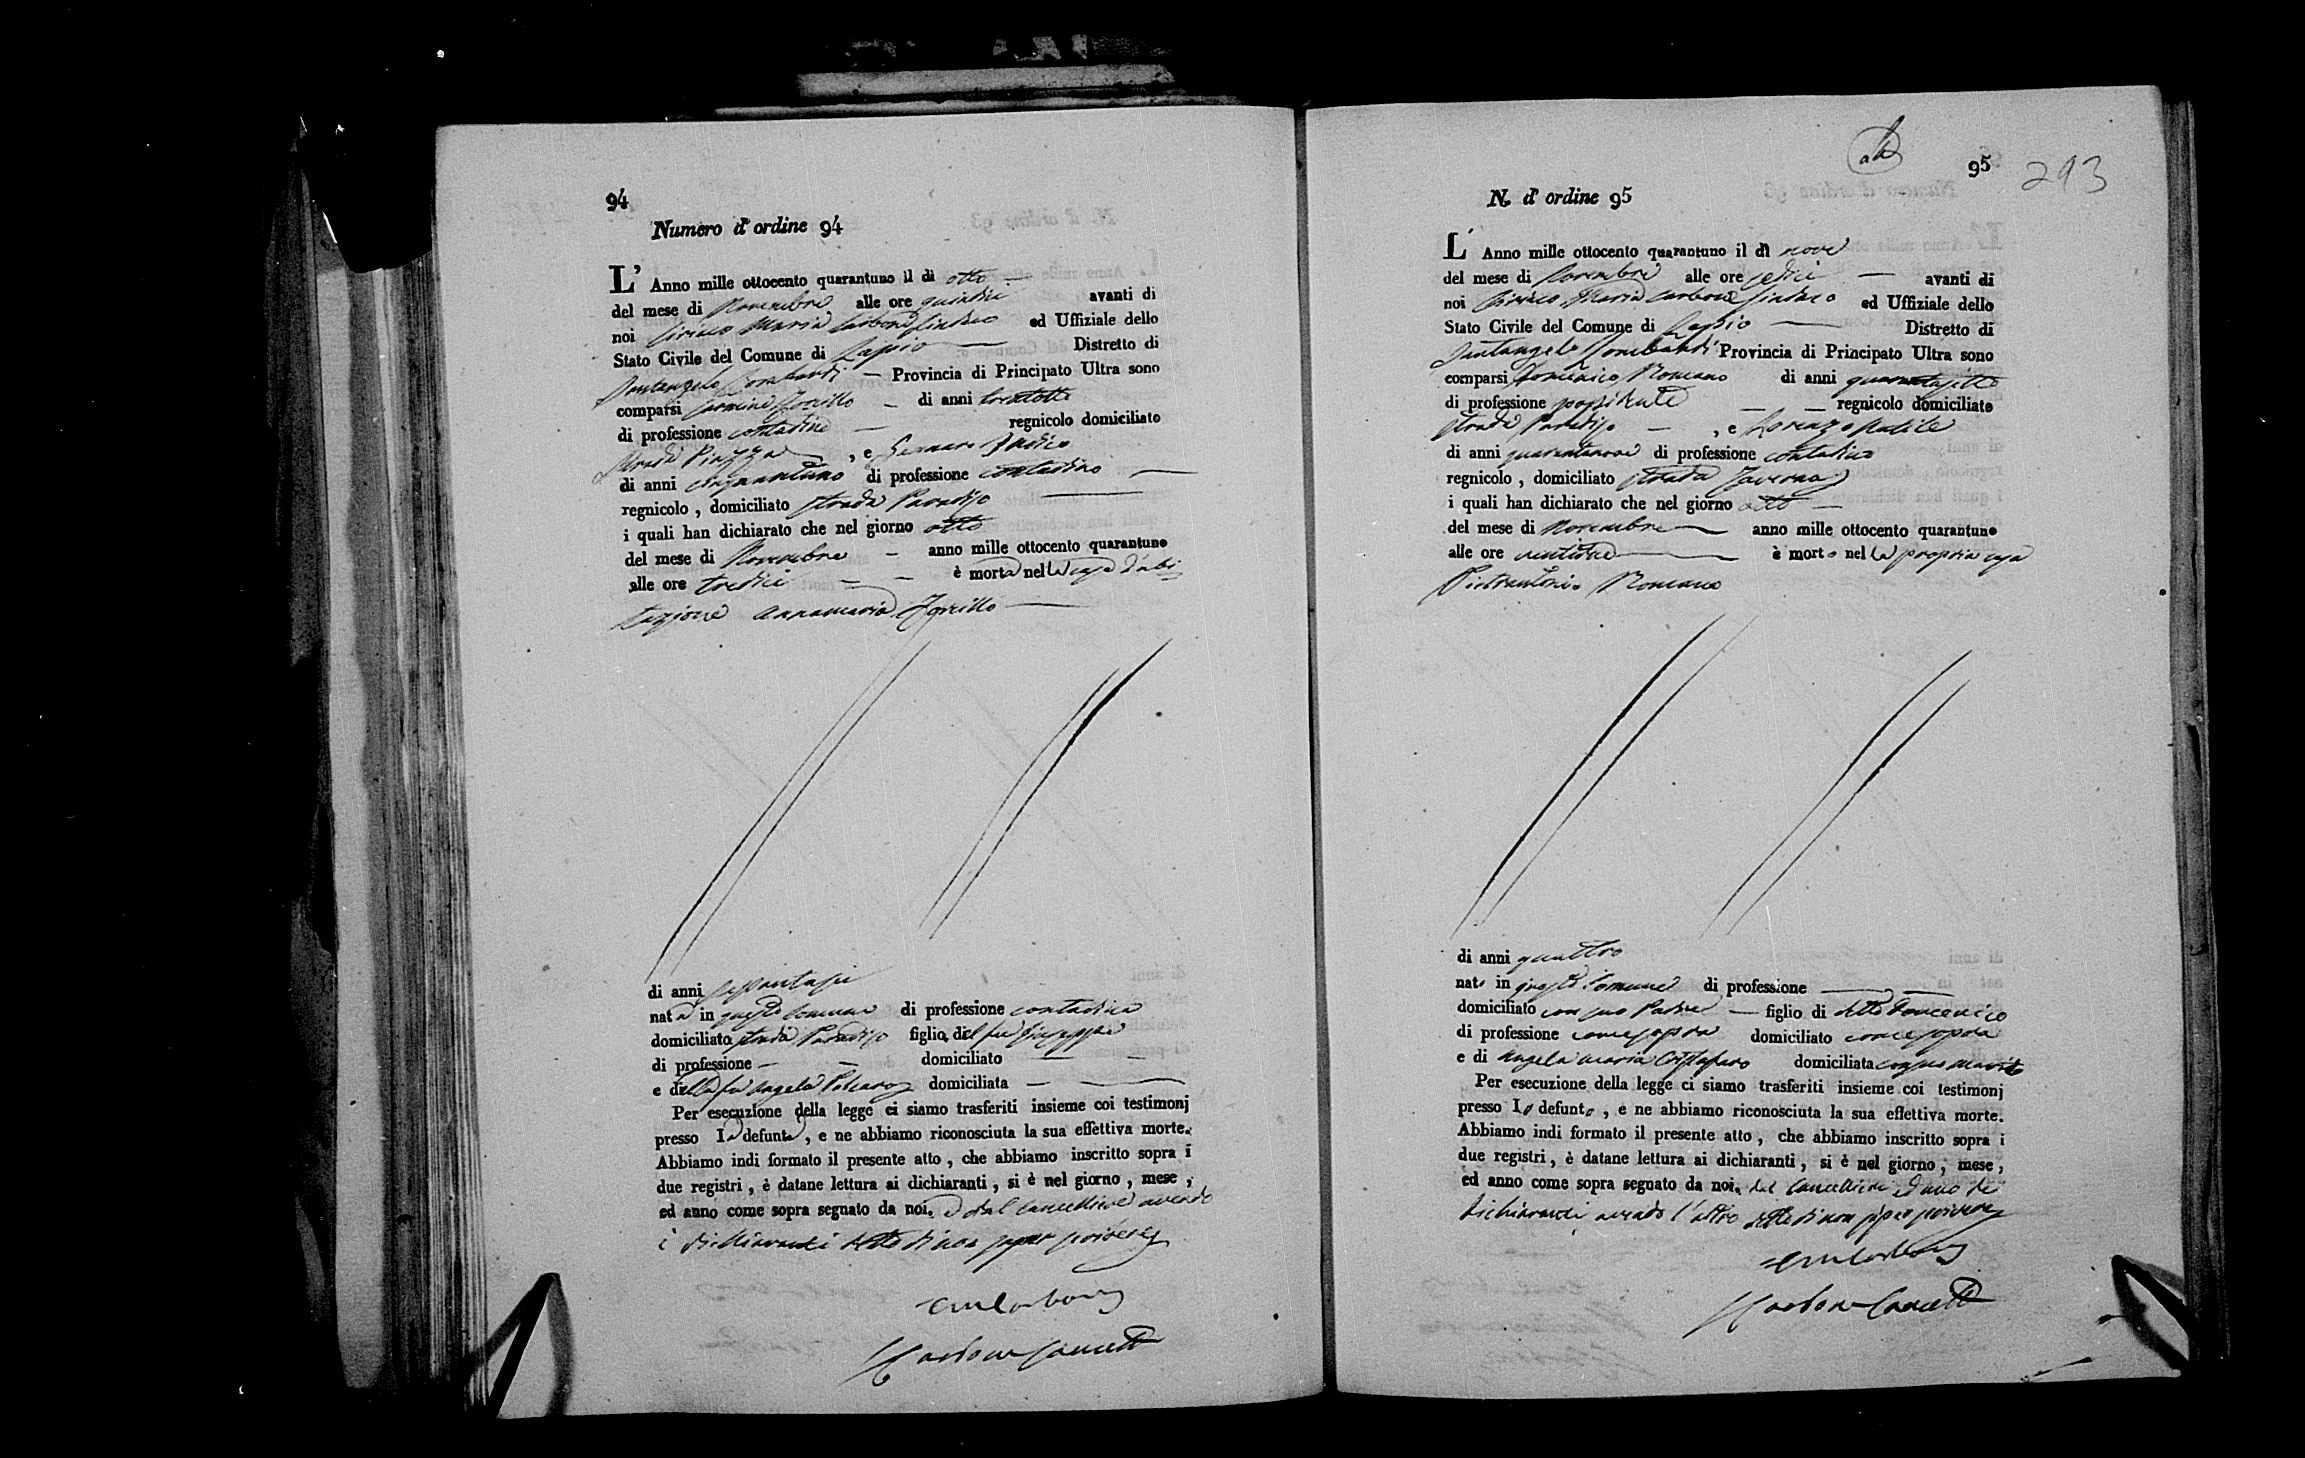 94
Numero d'ordine 94
L' Anno mille ottocento quarantuno il dì otto
del mese di Novembre alle ore quindici avanti di
noi Ciriaco Maria Carbone Sindaco ed Uffiziale dello
Stato Civile del Comune di Lapio Distretto di
Santangelo Lombardi Provincia di Principato Ultra sono
comparsi Carmine di anni trentotto
di professione contadino regnicolo domiciliato
Strada Piazza , e Gennaro
di anni cinquantuno di professione contadino
regnicolo , domiciliato strada Paradiso
i quali han dichiarato che nel giorno otto
del mese di Novembre anno mille ottocento quarantuno
alle ore tredici è morta nella casa d'abi
tazione Annamaria
di anni
nata in questo Comune di professione contadina
domiciliato strada Paradiso figlia del fu Giuseppe
di professione domiciliato
e della fu Angela domiciliata
Per esecuzione della legge ci siamo trasferiti insieme coi testimonj
presso la defunta , e ne abbiamo riconosciuta la sua effettiva morte.
Abbiamo indi formato il presente atto , che abbiamo inscritto sopra i
due registri , è datane lettura ai dichiaranti , si è nel giorno , mese ,
ed anno come sopra segnato da noi, e dal Cancelliere avendo
i dichiaranti detto di non saper scrivere
Carbone
Carbone Cancell
95
293
N. d' ordine 95
L' Anno mille ottocento quarantuno il dì nove
del mese di Novembre alle ore sedici avanti di
noi Ciriaco Maria Carbone Sindaco ed Uffiziale dello
Stato Civile del Comune di Lapio Distretto di
Santangelo Lombardi Provincia di Principato Ultra sono
comparsi Domenico Romano di anni quarantasette
di professione possidente regnicolo domiciliato
strada Paradiso , e Lorenzo
di anni quarantanove di professione contadino
regnicolo , domiciliato strada Taverna
i quali han dichiarato che nel giorno otto
del mese di Novembre anno mille ottocento quarantuno
alle ore ventidue è morto nella propria casa
Pietrantonio Romano
di anni quattro
nato in questo Comune di professione
domiciliato con suo Padre figlio di detto Domenico
di professione come sopra domiciliato come sopra
e di Angela Maria domiciliata con suo marito
Per esecuzione della legge ci siamo trasferiti insieme coi testimonj
presso lo defunto , e ne abbiamo riconosciuta la sua effettiva morte.
Abbiamo indi formato il presente atto , che abbiamo inscritto sopra i
due registri , è datane lettura ai dichiaranti , si è nel giorno , mese ,
ed anno come sopra segnato da noi, dal Cancelliere ed uno de
dichiaranti avendo l'altro detto di non saper scrivere
Carbone
Carbone Cancell